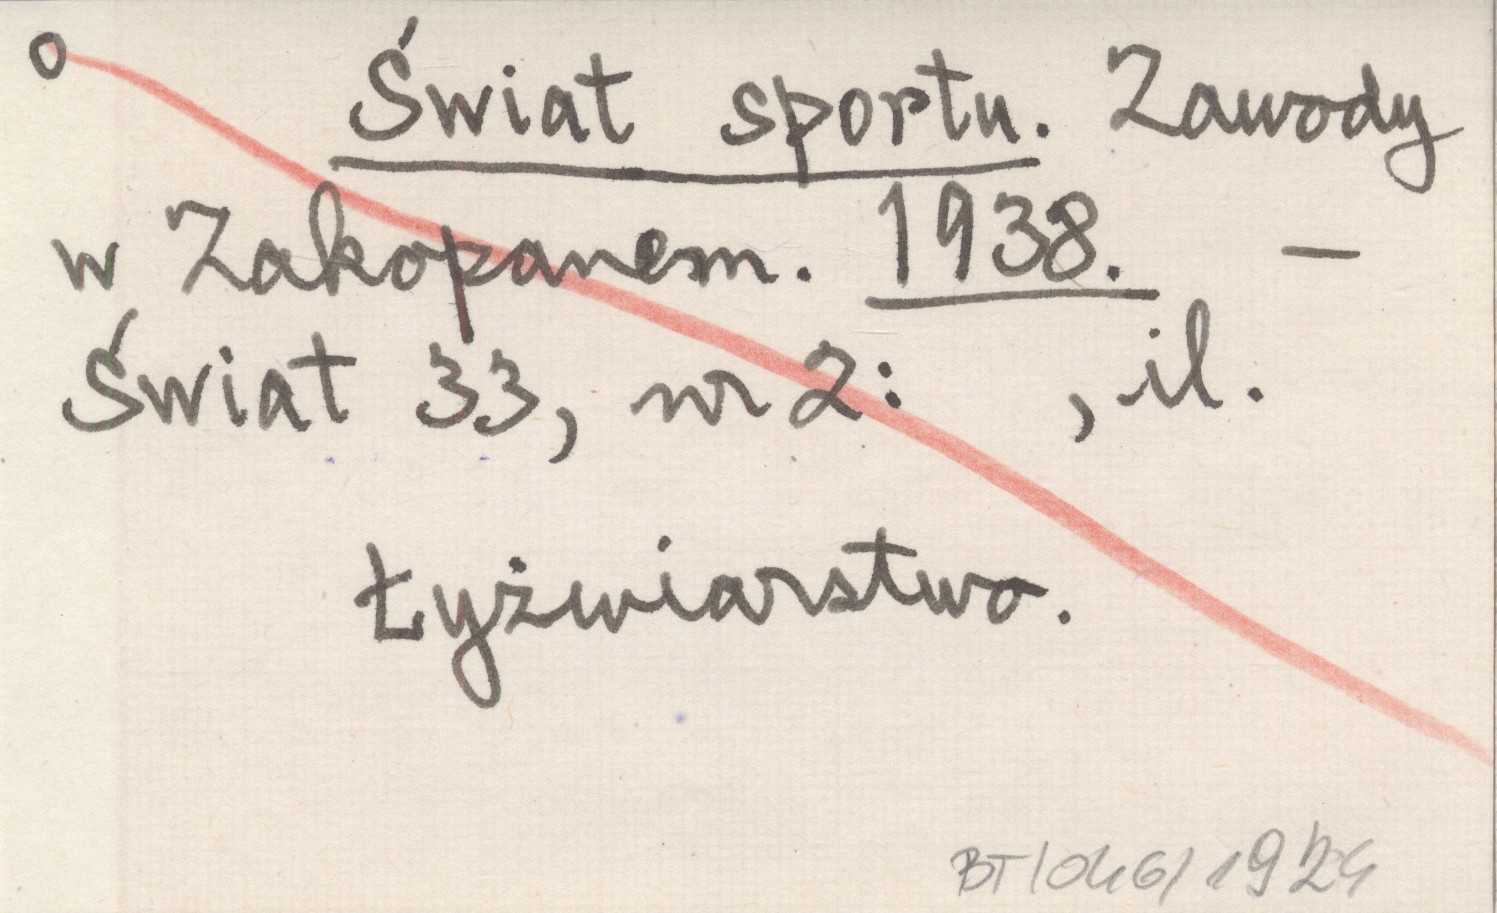 o Świat sportu. Zawody
w Zakopanem. 1938. —
Świat 33, nr 2:   , il.
Łyżwiarstwo.
BT/046/1924